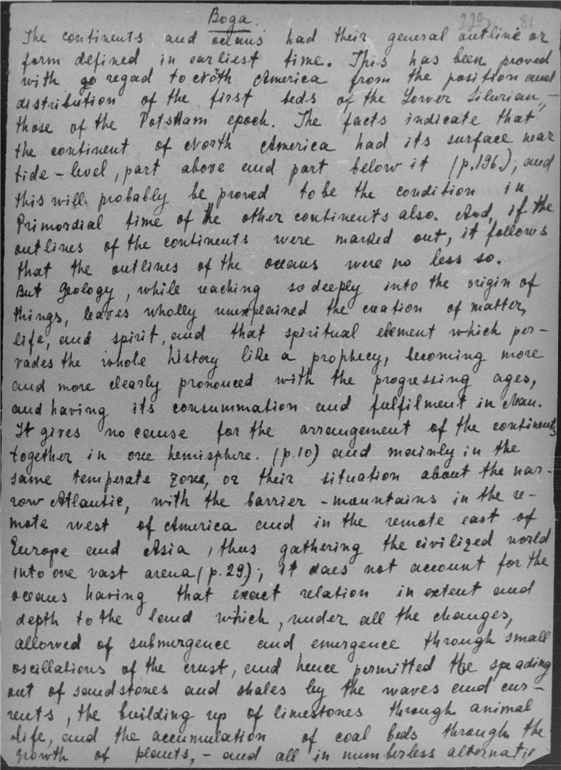 Boga.
229 81
The continents and oceans had their general outline or
form defined in earliest time. This has been proved
with go regad to North America from the position and
distribution of the first beds of the Lower Silurian, –
those of the Potsdam epoch. The facts indicate that
the continent of North America had its surface near
tide-level, part above and part below it (p.196); and
this will probably be proved to be the condition in
Primordial time of the other continents also. And, if the
outlines of the continents were marked out, it follows
that the outlines of the oceans were no less so.
But Geology, while reaching so deeply into the origin of
things, leaves wholly unexplained the creation of matter,
life, and spirit, and that spiritual element which per-
vades the whole history like a prophecy, becoming more
and more clearly pronounced with the progressing ages,
and having its consummation and fulfilment in Man.
It gives no cause for the arrangement of the continents
together in one hemisphere. (p.10) and mainly in the
same temperate zone, or their situation about the nar-
row Atlantic, with the barrier-mountains in the re-
mote west of America and in the remote east of
Europe and Asia, thus gathering the civilized world
into one vast arena (p.29); it does not account for the
oceans having that exact relation in extent and
depth to the land which, under all the changes,
allowed of submergence and emergence through small
oscillations of the crust, and hence permitted the speading
out of sandstones and shales by the waves and cur-
rents, the building up of limestones through animal
life, and the accumulation of coal beds through the
growth of plants, – and all in numberless alternatio